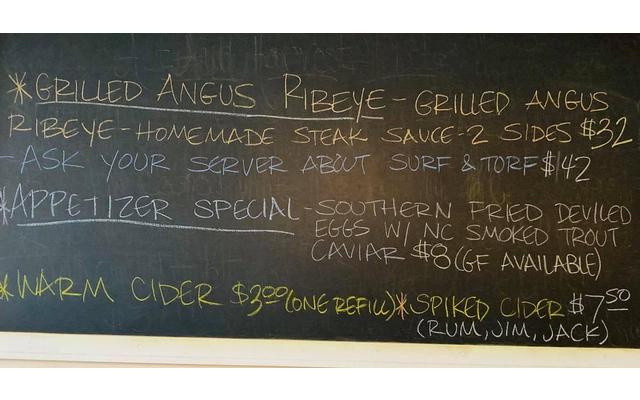 *GRILLED ANGUS RIBEYE - GRILLED ANGUS
RIBEYE - HOMEMADE STEAK SAUCE - 2 SIDES $32
- ASK YOUR SERVER ABOUT SURF & TORF $42
*APPETIZER SPECIAL - SOUTHERN FRIED DEVILED
EGGS W/ NC SMOKED TROUT
CAVIAR $8 (GF AVAILABLE)
*WARM CIDER $3.00 (ONE REFILL) *SPIKED CIDER $7.50
(RUM, JIM, JACK)